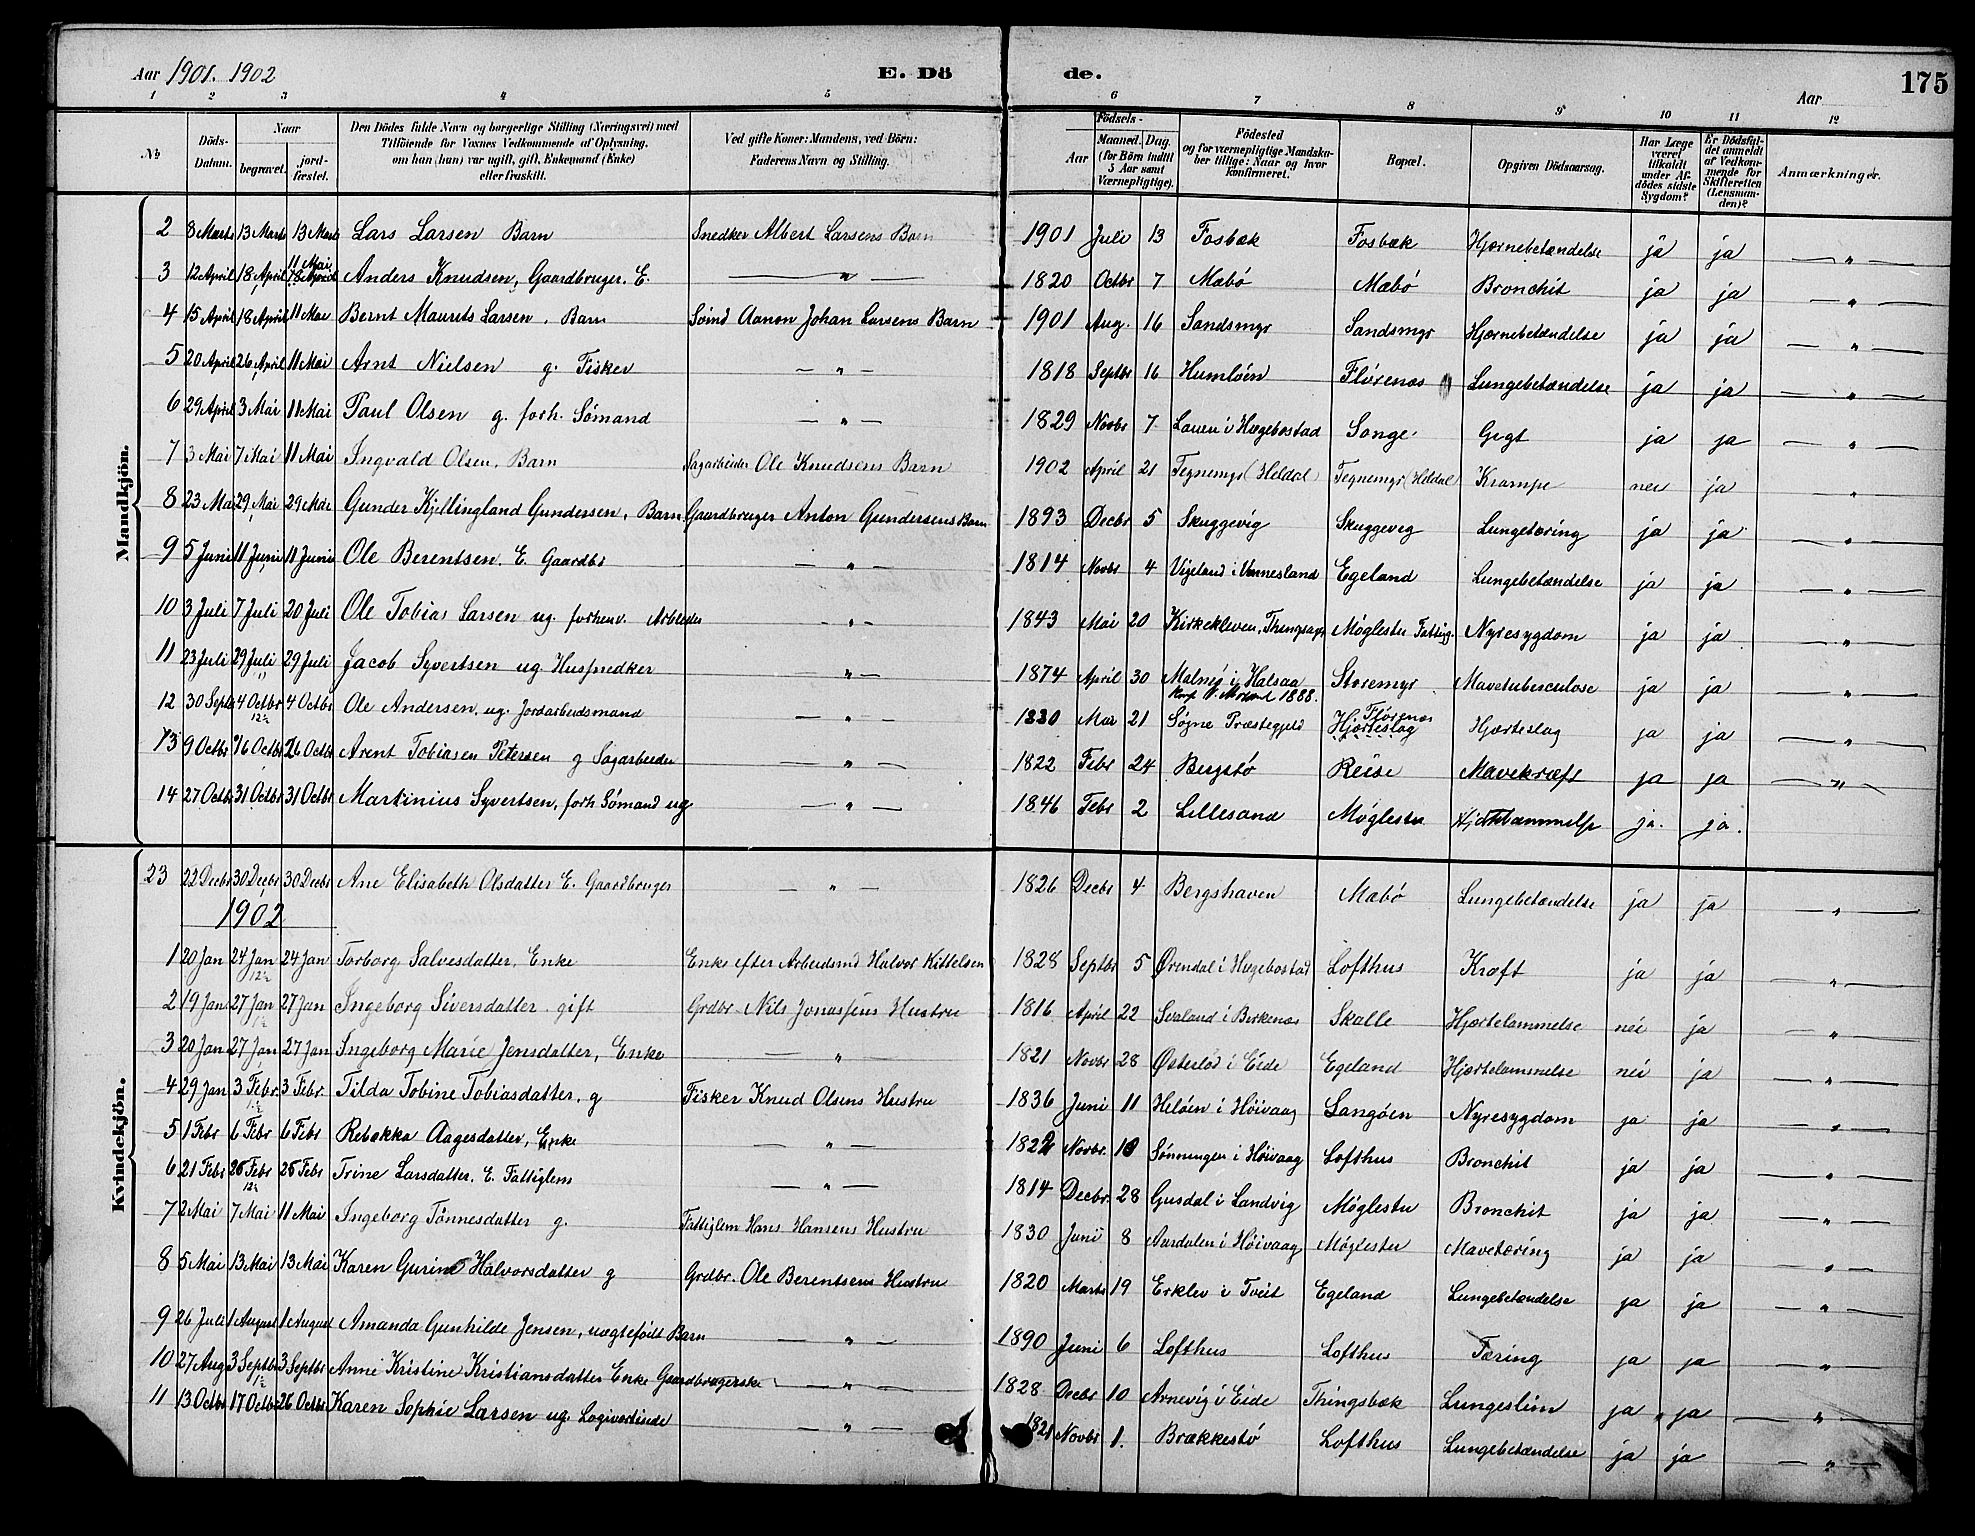 Aar 1901. 1902 E. Dö de. Aar 175
1 2 3 4 5 6 7 8 9 10 11 12
№ Döds-Datum. Naar begravet. jord-fæstet. Den Dödes fulde Navn og borgerlige Stilling (Næringsvei) med Tilföiende for Voxnes Vedkommende af Oplysning, om han (hun) var ugift, gift, Enkemand (Enke) eller fraskilt. Ved gifte Koner: Mandens, ved Börn: Faderens Navn og Stilling. Födsels- Aar Maaned. Dag. (for Börn indtil 5 Aar samt Værnepligtige). Födested og for værnepligtige Mandska-ber tillige: Naar og hvor konfirmeret. Bopæl. Opgiven Dödsaarsag. Har Læge været tilkaldt under Af-dödes sidste Sygdom? Er Dödsfal-det anmeldt af Vedkom-mende for Skifteretten (Lensman-den)? Anmærkninger.
Mandkjön.
2 8 Marts 13 Marts 13 Marts Lars Larsen Barn Snedker Albert Larsens Barn 1901 Juli 13 Fosbæk Fosbæk Hjernebetændelse ja ja — " —
3 12 April 18 April 11 Mai 18 April Anders Knudsen, Gaardbruger. E. — " — 1820 Octbr 7 Mæbø Mæbø Bronchit ja ja — " —
4 15 April 18 April 11 Mai Bernt Maurits Larsen. Barn Sømd Aanon Johan Larsens Barn 1901 Aug. 16 Sandsmyr Sandsmyr Hjernebetændelse ja ja — " —
5 20 April 26 April 11 Mai Arnt Nielsen g. Fisker — " — 1818 Septbr 16 Humløen Flørenæs Lungebetændelse ja ja — " —
6 29 April 3 Mai 11 Mai Paul Olsen g. forh. Sømand — " — 1829 Novbr 7 Lauen i Hægebostad Songe Gigt ja ja — " —
7 3 Mai 7 Mai 11 Mai Ingvald Olsen, Barn Sagarbeider Ole Knudsens Barn 1902 April 21 Tegnemyr (Heldal) Tegnemyr (Heldal) Krampe nei ja — " —
8 23 Mai 29 Mai 29 Mai Gunder Kjellingland Gundersen, Barn Gaardbruger Anton Gundersens Barn 1893 Decbr 5 Skuggevig Skuggevig Lungetæring ja ja — " —
9 5 Juni 11 Juni 11 Juni Ole Berentsen. E. Gaardbr — " — 1814 Novbr 4 Vigeland i Vennesland Egeland Lungebetændelse ja ja — " —
10 3 Juli 7 Juli 20 Juli Ole Tobias Larsen ug. forhenv. Arbeider — " — 1843 Mai 20 Kirkekleven, Møglestu Fattigg. Nyresygdom ja ja — " —
11 23 Juli 29 Juli 29 Juli Jacob Syvertsen ug Hussnedker — " — 1874 April 30 Malmø i Halsaa 1888. Storemyr Mavetuberculose ja ja — " —
12 30 Septbr 4 Octbr 12½ 4 Octbr Ole Andersen. ug. Jordarbeidsmand — " — 1830 Mar 21 Søgne Præstegjeld Flørenæs Hjerteslag Hjerteslag ja ja — " —
13 9 Octbr 16 Octbr 26 Octbr Arent Tobiasen Petersen g Sagarbeider — " — 1822 Febr 24 Bergstø Reise Mavekræft ja ja — " —
14 27 Octbr 31 Octbr 31 Octbr Martinius Syvertsen, forh Sømand ug — " — 1846 Febr 2 Lillesand Møglestu ja. ja. — " —
Kvindekjön.
23 22 Decbr 30 Decbr 30 Decbr Ane Elisabeth Olsdatter E. Gaardbruger — " — 1826 Decbr 4 Bergshaven Mæbø Lungebetændelse ja ja — " —
1902
1 20 Jan 24 Jan 12½ 24 Jan Torborg Salvesdatter, Enke Enke efter Arbeidsmd Halvor Kittelsen 1828 Septbr 5 Ørendal i Hægebostad Lofthus Kræft ja ja — " —
2 19 Jan 27 Jan 1½ 27 Jan Ingeborg Siversdatter gift Grdbr. Nils Jonassens Hustru 1816 April 22 Svaland i Birkenæs Skalle Hjertelammelse nei ja — " —
3 20 Jan 27 Jan 27 Jan Ingeborg Marie Jensdatter, Enke — " — 1821 Novbr 28 Østerlød i Eide Egeland Hjertelammelse nei ja — " —
4 29 Jan 3 Febr 1½ 3 Febr. Tilda Tobine Tobiasdatter. g Fisker Knud Olsens Hustru 1836 Juni 11 Heløen i Høivaag Langøen Nyresygdom ja ja — " —
5 1 Febr 6 Febr 6 Febr Rebekka Aagesdatter, Enke — " — 1822 Novbr. 10 Sønningen i Høivaag Lofthus Bronchit ja ja — " —
6 21 Febr 25 Febr 12½ 25 Febr Trine Larsdatter. E. Fattiglem — " — 1814 Decbr. 28 Gusdal i Landvig Møglestu Bronchit ja ja — " —
7 2 Mai 7 Mai 11 Mai Ingeborg Tønnesdatter g. Fattiglem Hans Hansens Hustru 1830 Juni 8 Aardalen i Høivaag Møglestu Mavetæring ja ja — " —
8 5 Mai 13 Mai 13 Mai Karen Gurine Halvorsdatter g Grdbr. Ole Berentsens Hustru 1820 Marts 19 Erklev i Tveit Egeland Lungebetændelse ja ja — " —
9 26 Juli 1 August 1 August Amanda Gunhilde Jensen, uægtefødt Barn — " — 1890 Juni 6 Lofthus Lofthus Tæring ja ja — " —
10 27 Aug 3 Septbr 1½ 3 Septbr Anne Kristine Kristiansdatter Enke Gaardbrugerske — " — 1828 Decbr 10 Arnevig i Eide Thingsbæk Lungeslim ja ja — " —
11 13 Octbr 17 Octbr 26 Octbr Karen Sophie Larsen ug. Logivertinde — " — 1821 Novbr 1. Brækkestø Lofthus Lungebetændelse ja ja — " —